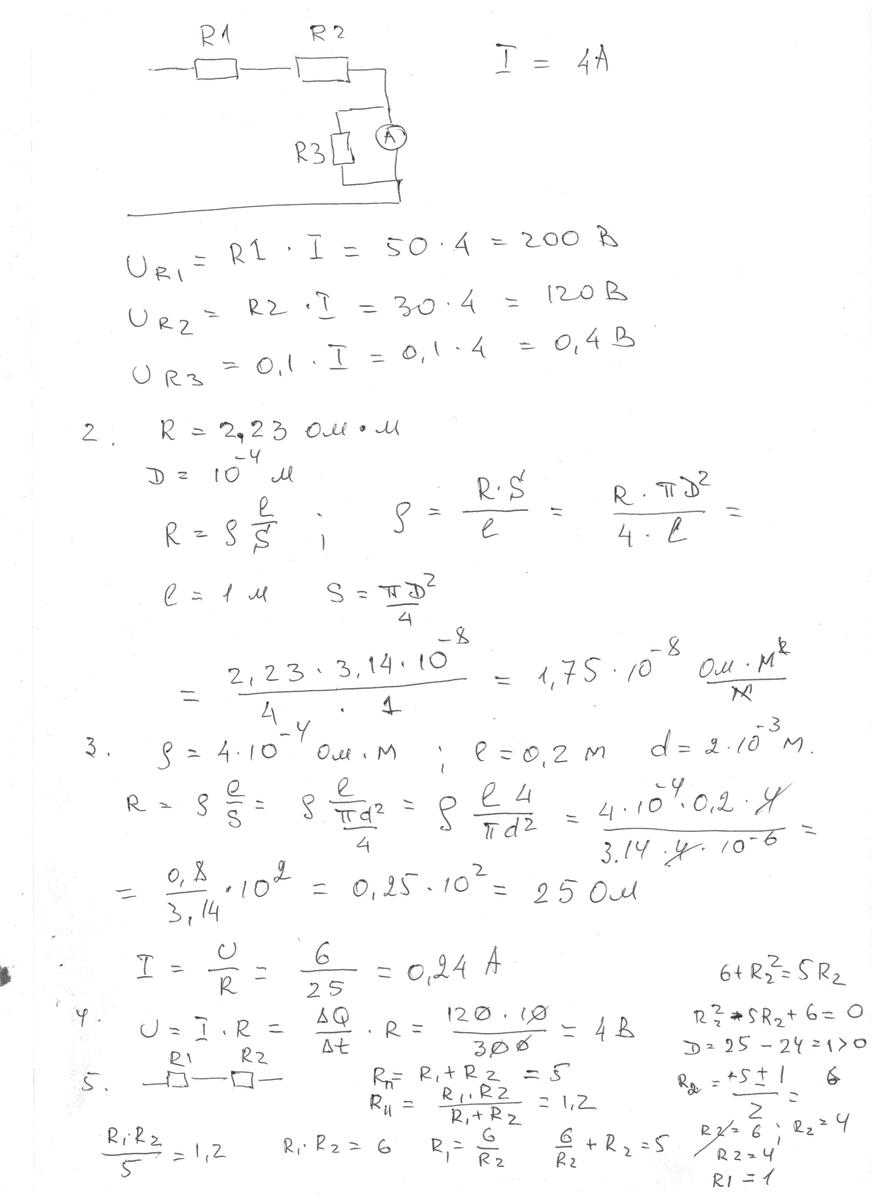 R1 R2 I = 4A
R3 A
U_{R1} = R1 · I = 50 · 4 = 200 В
U_{R2} = R2 · I = 30 · 4 = 120 В
U_{R3} = 0,1 · I = 0,1 · 4 = 0,4 В
2. R = 2,23 Ом · м
D = 10^{-4} м
R = ρ \frac{l}{S} ; ρ = \frac{R·S}{l} = \frac{R · πD^2}{4 · l} =
l = 1 м S = \frac{πD^2}{4}
= \frac{2,23 · 3,14 · 10^{-8}}{4 · 1} = 1,75 · 10^{-8} \frac{Ом · м^2}{м}
3. ρ = 4 · 10^{-4} Ом · м ; l = 0,2 м d = 2 · 10^{-3} м.
R = ρ \frac{l}{S} = ρ \frac{l}{\frac{πd^2}{4}} = ρ \frac{l 4}{πd^2} = \frac{4 · 10^{-4} · 0,2 · 4}{3.14 · 4 · 10^{-6}} =
= \frac{0,8}{3,14} · 10^2 = 0,25 · 10^2 = 25 Ом
I = \frac{U}{R} = \frac{6}{25} = 0,24 A
4. U = I · R = \frac{ΔQ}{Δt} · R = \frac{120 · 10}{300} = 4 В
5. R1 R2 R_п = R_1 + R_2 = 5
R_{11} = \frac{R_1 · R_2}{R_1 + R_2} = 1,2
\frac{R_1 · R_2}{5} = 1,2 R_1 · R_2 = 6 R_1 = \frac{6}{R_2} \frac{6}{R_2} + R_2 = 5
6 + R_2^2 = 5R_2
R_2^2 - 5R_2 + 6 = 0
D = 25 - 24 = 1 > 0
R_2 = \frac{+5 ± 1}{2} = 6
R2 = 6 ; R_2 = 4
R2 = 4
R1 = 1